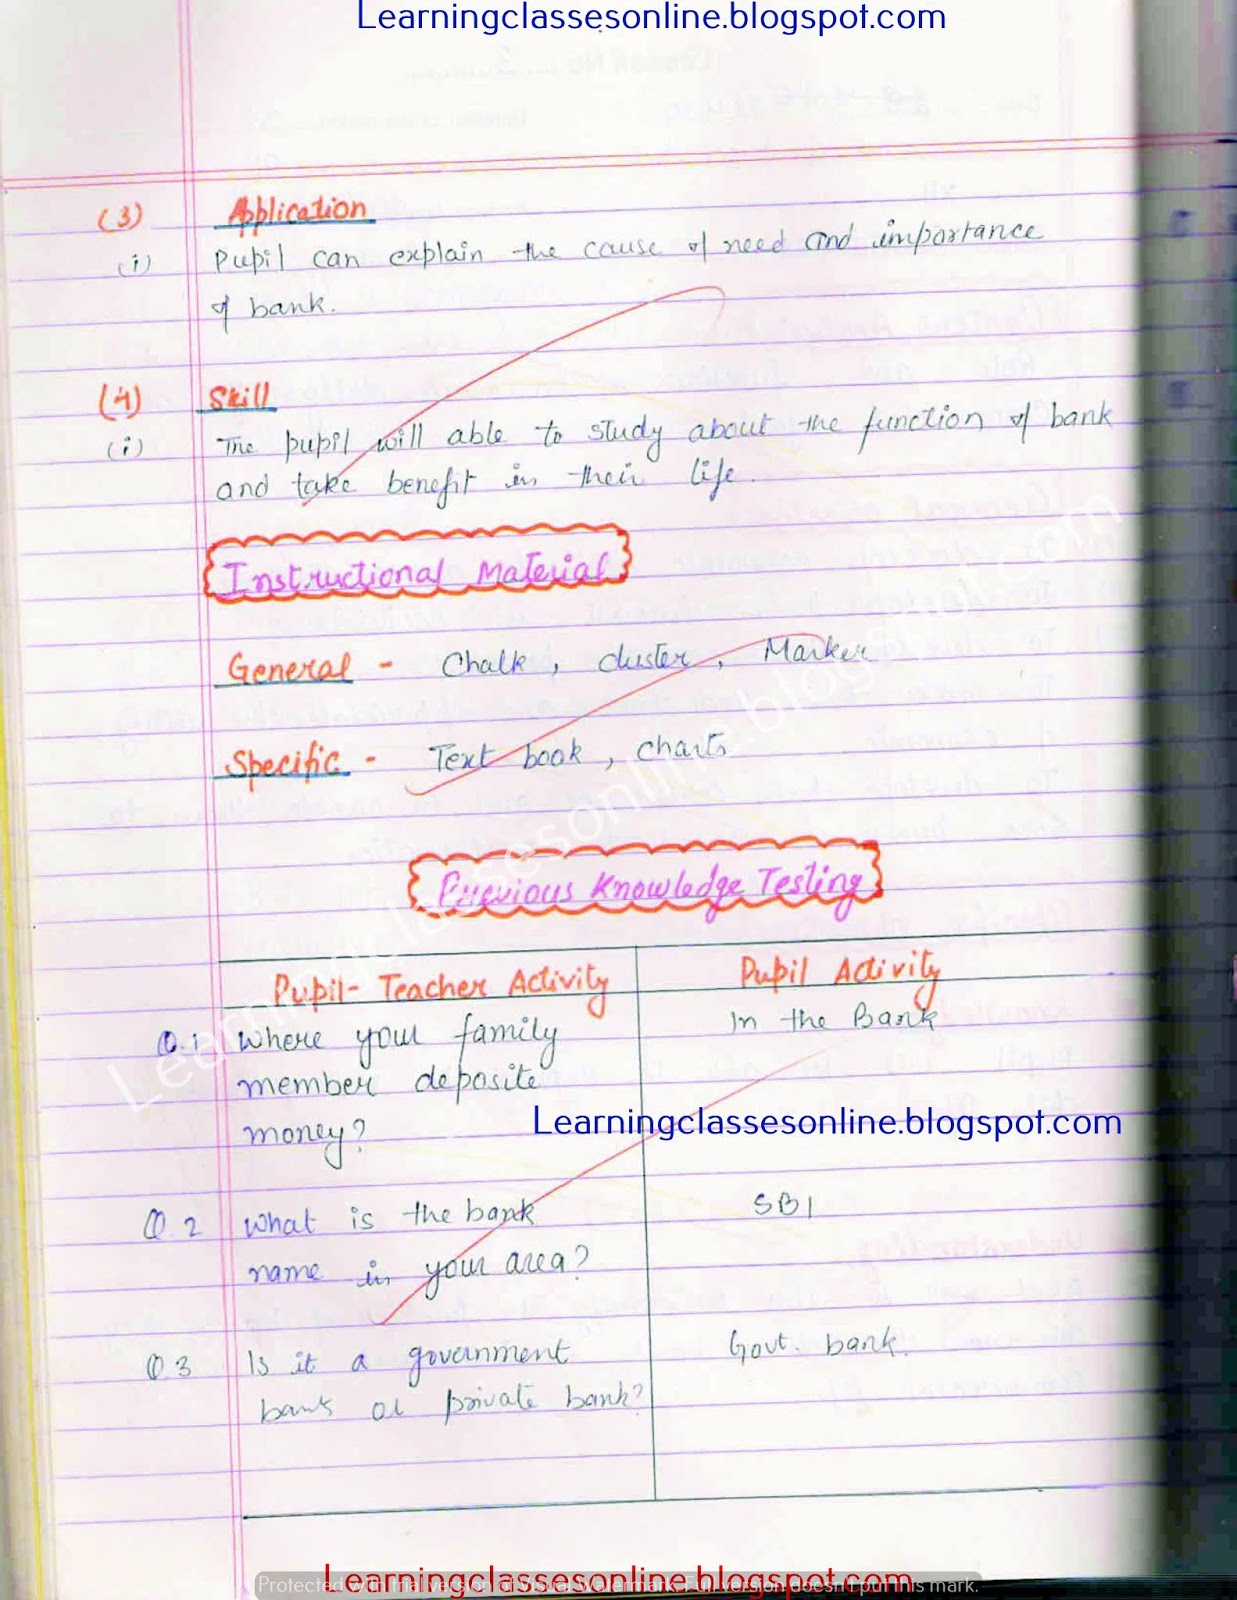 Learningclassesonline.blogspot.com
(3) Application
(i) Pupil can explain the cause of need and importance
of bank.
(4) Skill
(i) The pupil will able to study about the function of bank
and take benefit in their life.
Instructional Material
General - Chalk, duster, Marker
Specific - Text book, charts
Previous Knowledge Testing
Pupil-Teacher Activity Pupil Activity
Q.1 Where your family In the Bank
member deposite
money?
Learningclassesonline.blogspot.com
Q.2 What is the bank SBI
name in your area?
Q.3 Is it a government Govt. bank.
bank or private bank?
Learningclassesonline.blogspot.com
Learningclassesonline.blogspot.com
Protected with trial version of Visual Watermark. Full version doesn't put this mark.